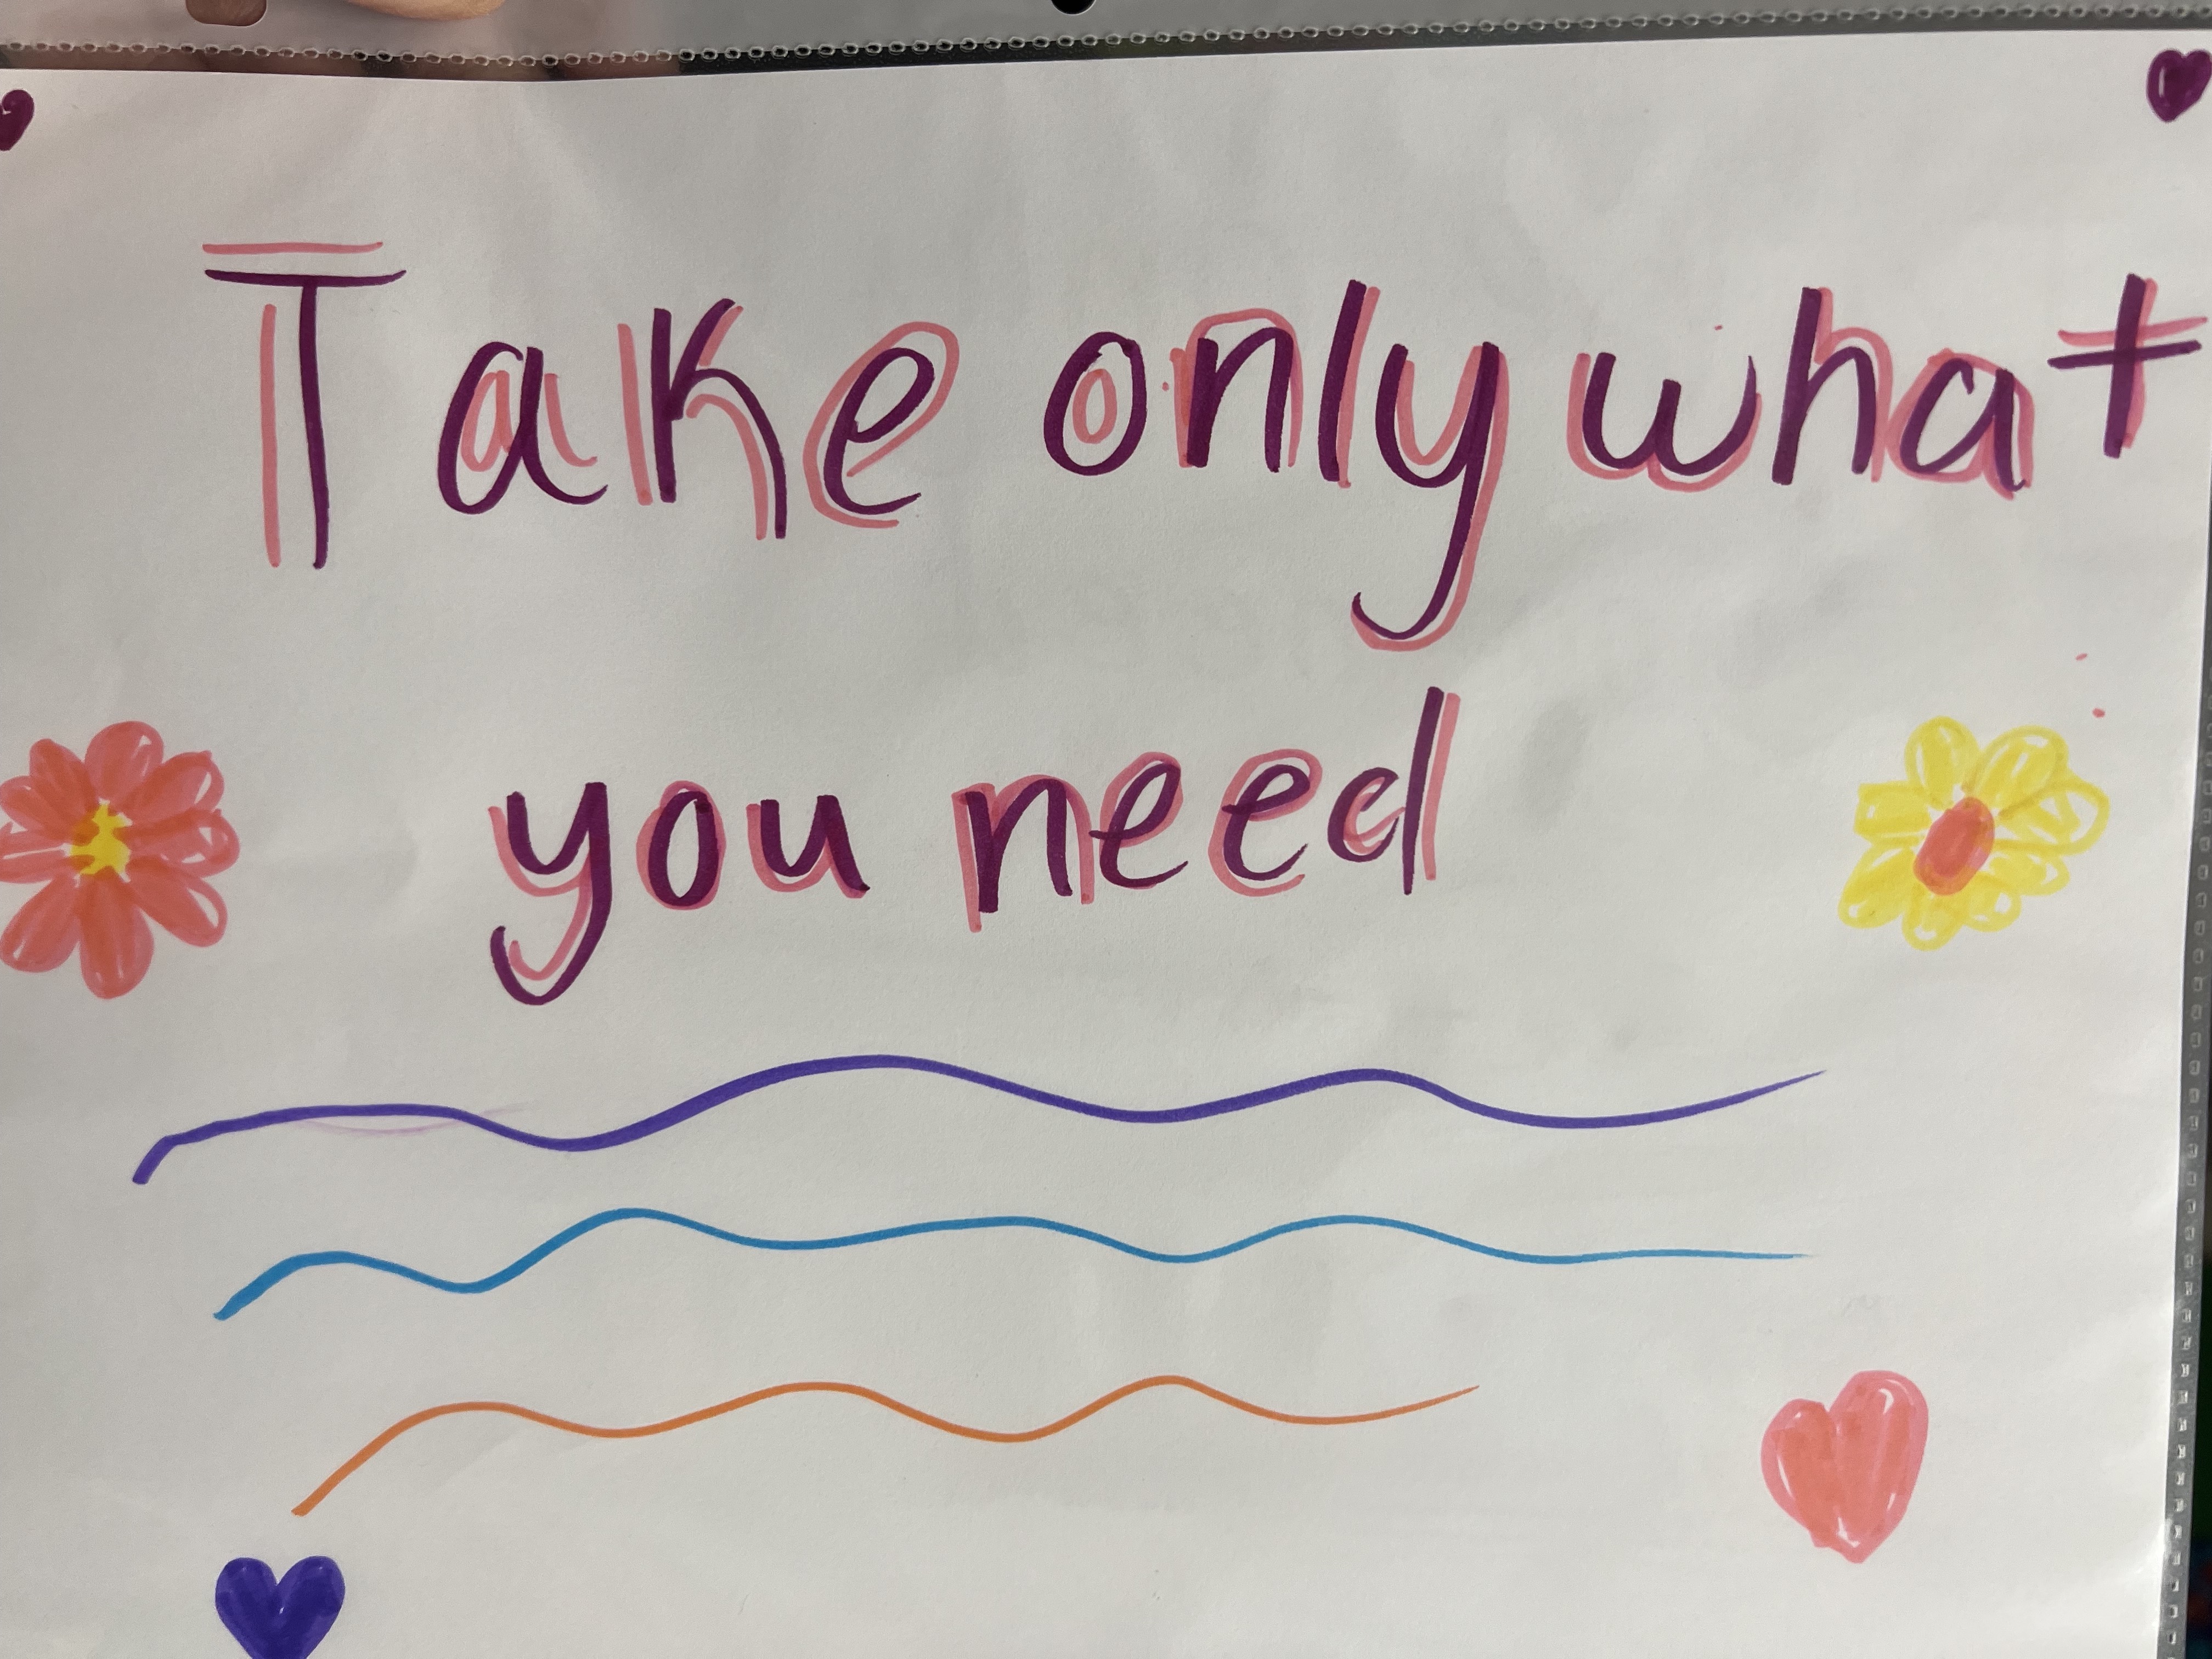 Take only what
you need